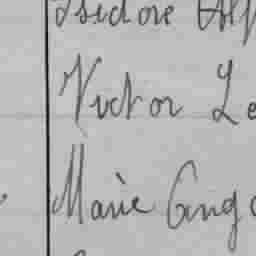 Isidore Alf
Victor Le
Marie Ang